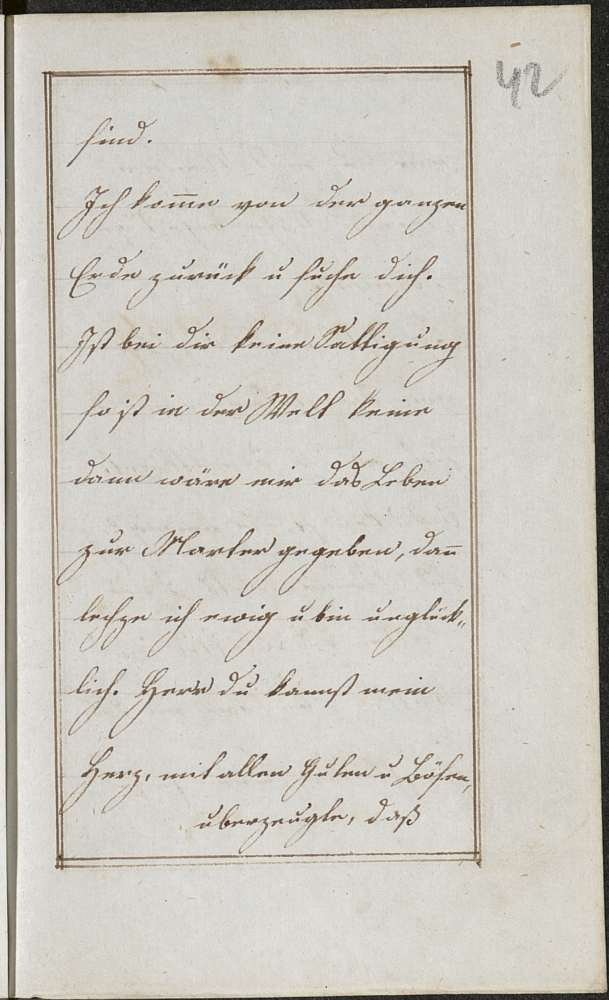 42
sind.
Ich kom̄e von der ganzen
Erde zurück u suche dich.
Ist bei dir keine Sattigung
so ist in der Welt keine
dann wäre mir das Leben
zur Marter gegeben, dan̄
lechze ich ewig u bin unglück„
lich. Herr du kannst mein
Herz, mit allen Guten u Bösen,
uberzeugte, daß